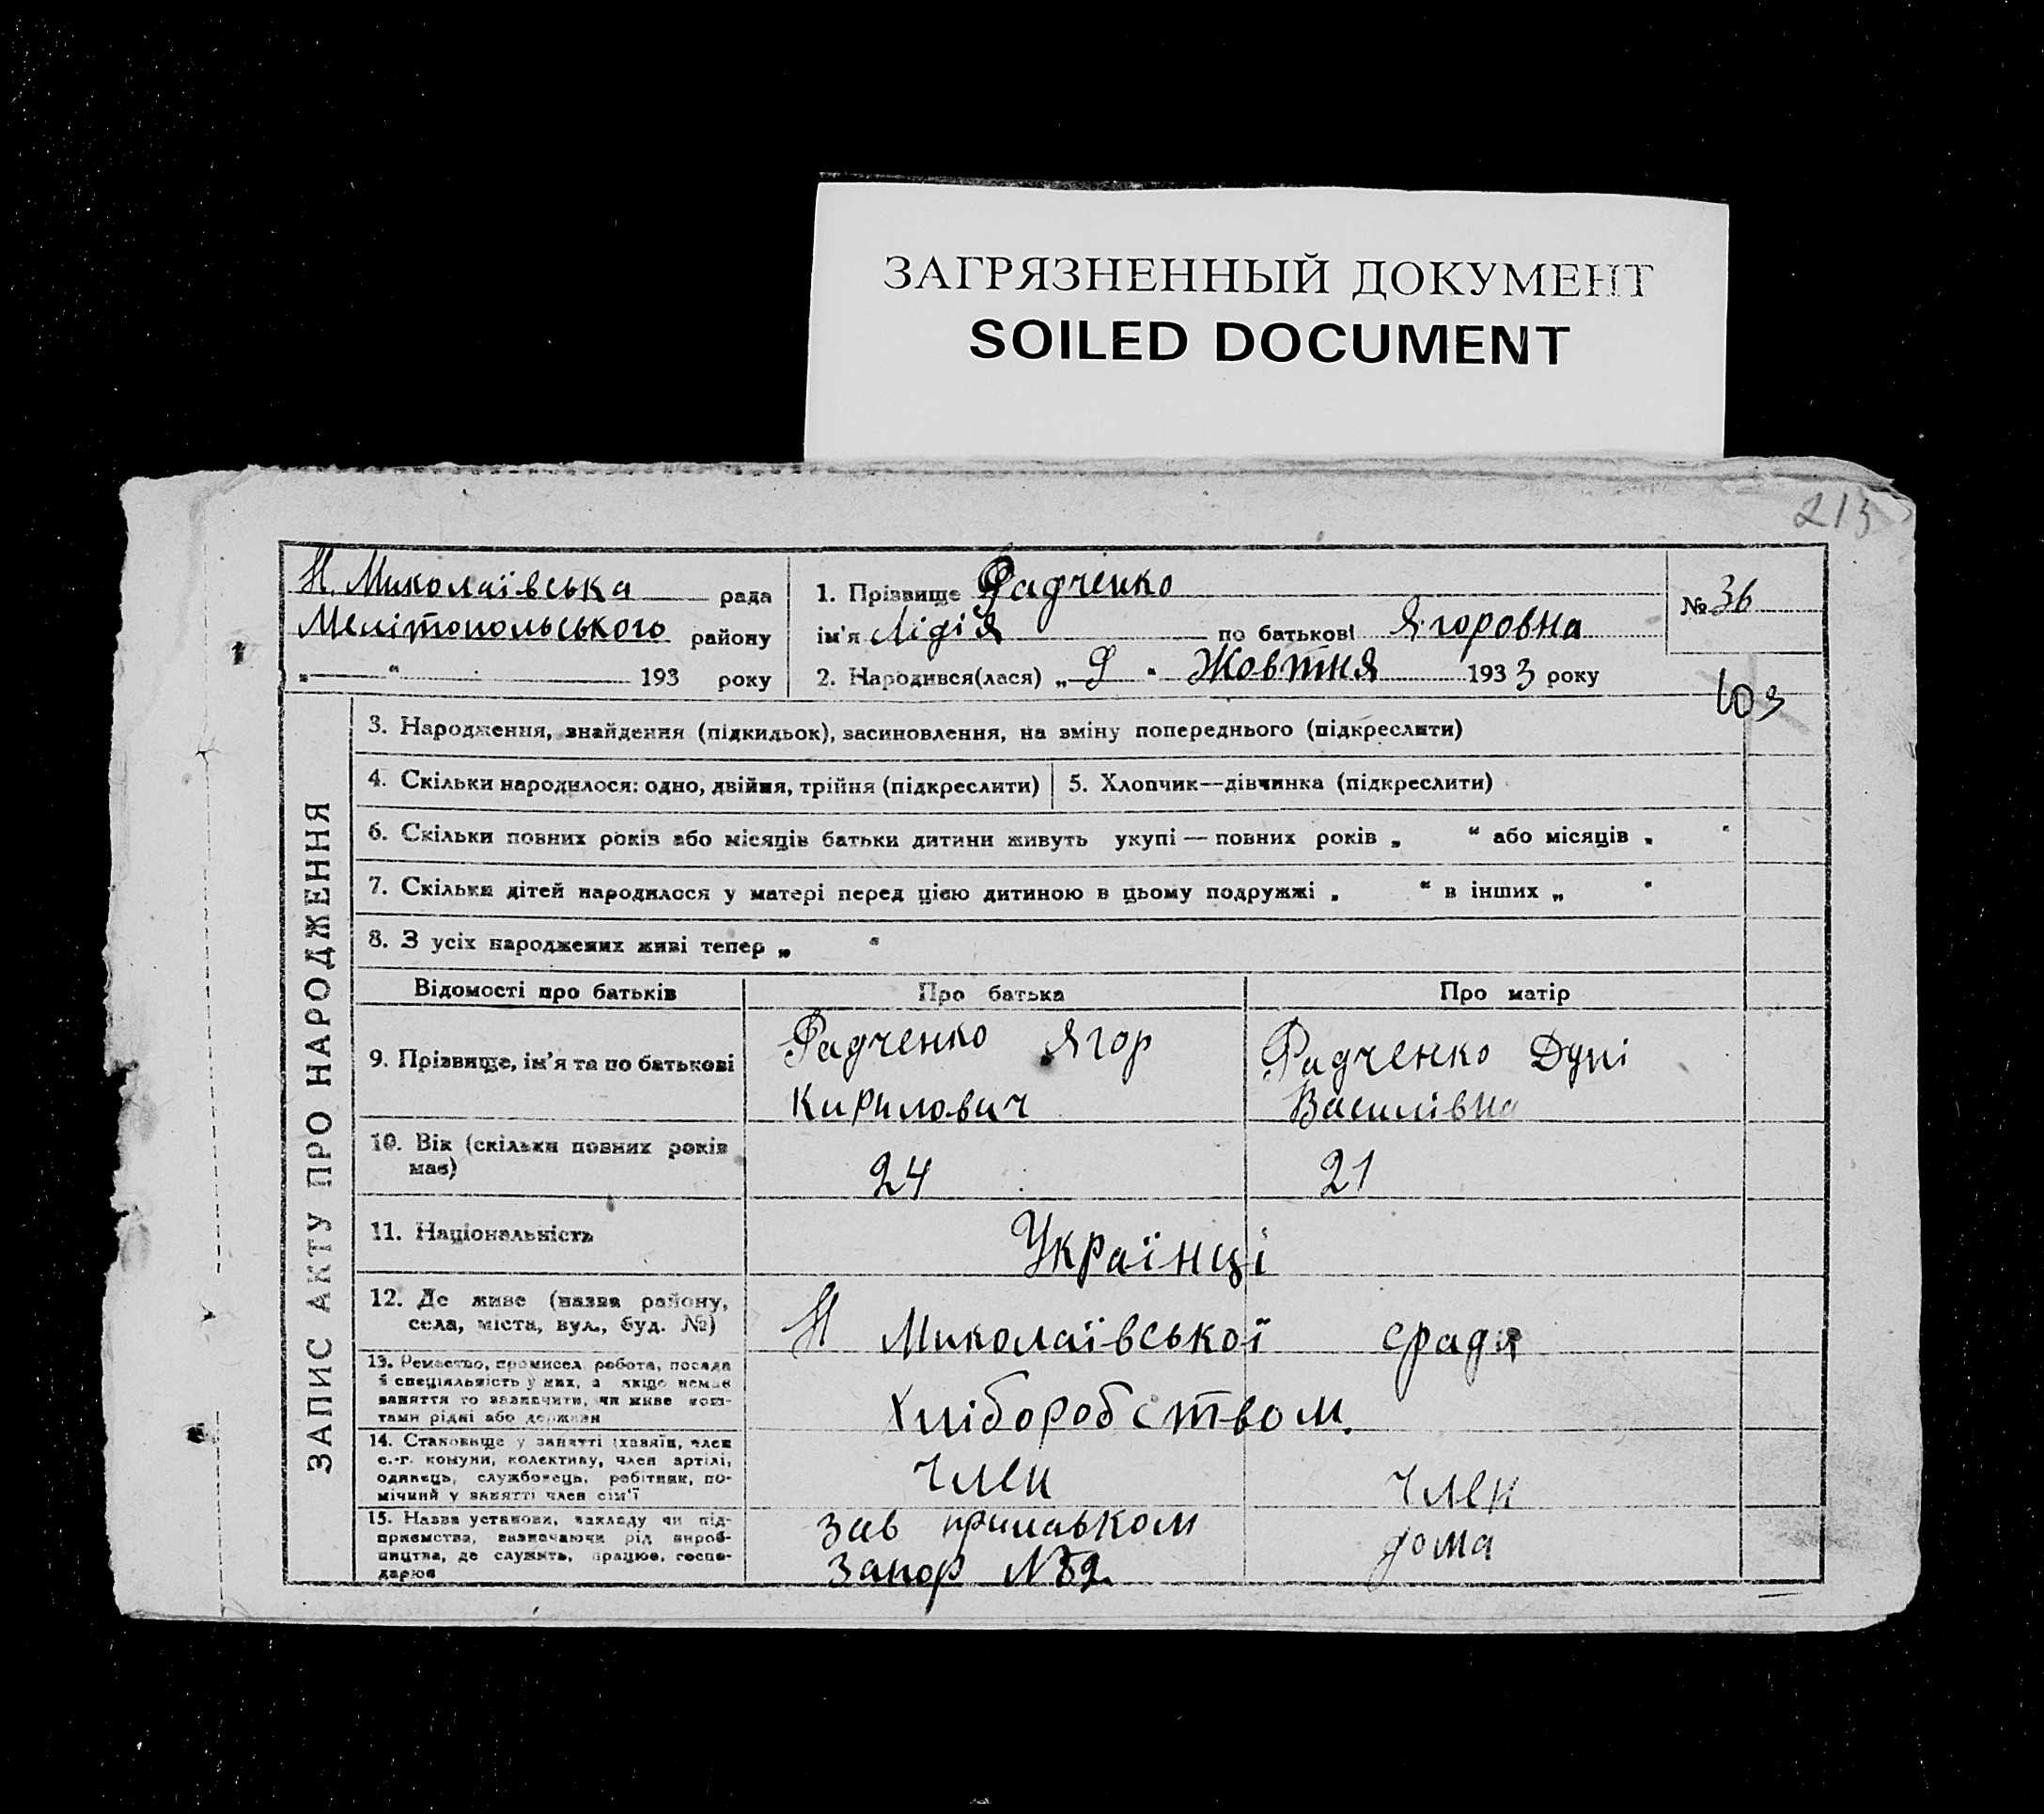 ЗАГРЯЗНЕННЫЙ ДОКУМЕНТ
SOILED DOCUMENT
213
Н. Миколаївська рада
Мелітопольського району
„ “ 193 року
1. Прізвище Радченко
ім'я Лідія по батькові Ягоровна
2. Народився(лася) „ 9 “ Жовтня 1933 року
№ 36
103
ЗАПИС АКТУ ПРО НАРОДЖЕННЯ
3. Народження, знайдення (підкидьок), засиновлення, на зміну попереднього (підкреслити)
4. Скільки народилося: одно, двійня, трійня (підкреслити)
5. Хлопчик—дівчинка (підкреслити)
6. Скільки повних років або місяців батьки дитини живуть укупі — повних років „ “ або місяців „ “
7. Скільки дітей народилося у матері перед цією дитиною в цьому подружжі „ “ в інших „ “
8. З усіх народжених живі тепер „ “
Відомості про батьків Про батька Про матір
9. Прізвище, ім'я та по батькові
Радченко Ягор
Кирилович
Радченко Дуні
Василівна
10. Вік (скільки повних років
має)
24
21
11. Національність
Українці
12. Де живе (назва району,
села, міста, вул., буд. №)
Н Миколаївської сради
13. Ремество, промисел, робота, посада
й спеціяльність у них, а якщо немає
заняття то зазначити, чи живе кош-
тами рідні або держави
Хліборобством.
14. Становище у занятті (хазяїн, член
с.-г. комуни, колективу, член артілі,
одинець, службовець, робітник, по-
мічний у занятті член сім'ї
член
член
15. Назва установи, закладу чи під-
приємства, зазначаючи рід вироб-
ництва, де служить, працює, госпо-
дарює
зав
Запор №
дома